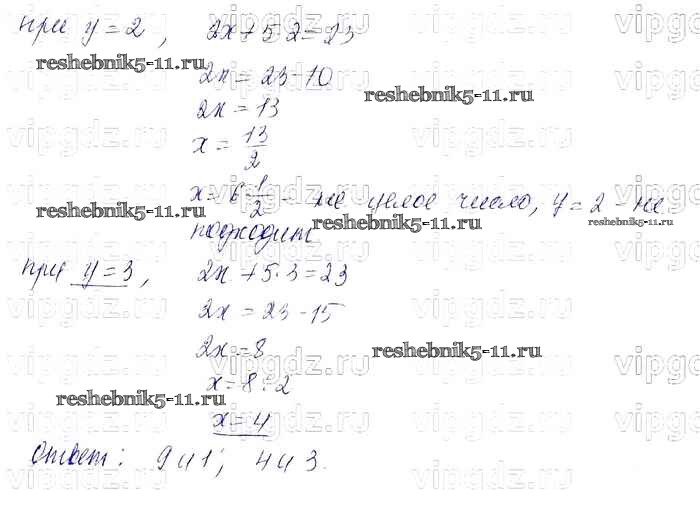 при y = 2, 2x + 5·2 = 23
2x = 23 - 10
2x = 13
x = 13/2
x = 6 1/2 - не целое число, y = 2 - не
подходит
при y = 3, 2x + 5·3 = 23
2x = 23 - 15
2x = 8
x = 8 : 2
x = 4
Ответ: 9 и 1; 4 и 3.
reshebnik5-11.ru
reshebnik5-11.ru
reshebnik5-11.ru
reshebnik5-11.ru
reshebnik5-11.ru
reshebnik5-11.ru
vipgdz.ru